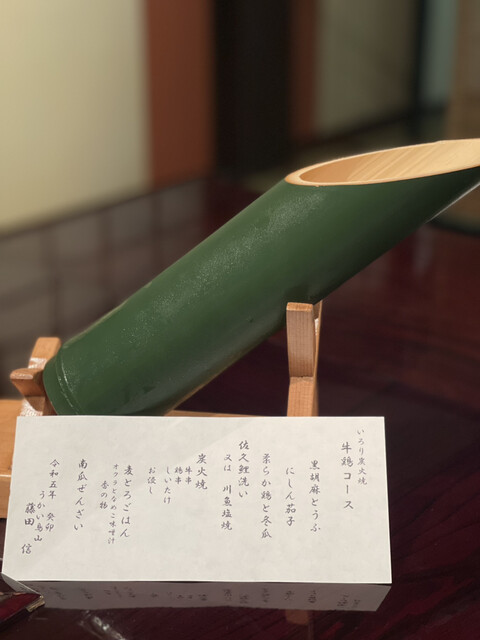 いろり炭火焼
牛鶏コース
黒胡麻とうふ
にしん茄子
柔らか鶏と冬瓜
佐久鯉洗い
又は 川魚塩焼
炭火焼
牛串
鶏串
しいたけ
お浸し
麦とろごはん
オクラとなめこ味噌汁
香の物
南瓜ぜんざい
令和五年 癸卯
うかい鳥山
藤田 信